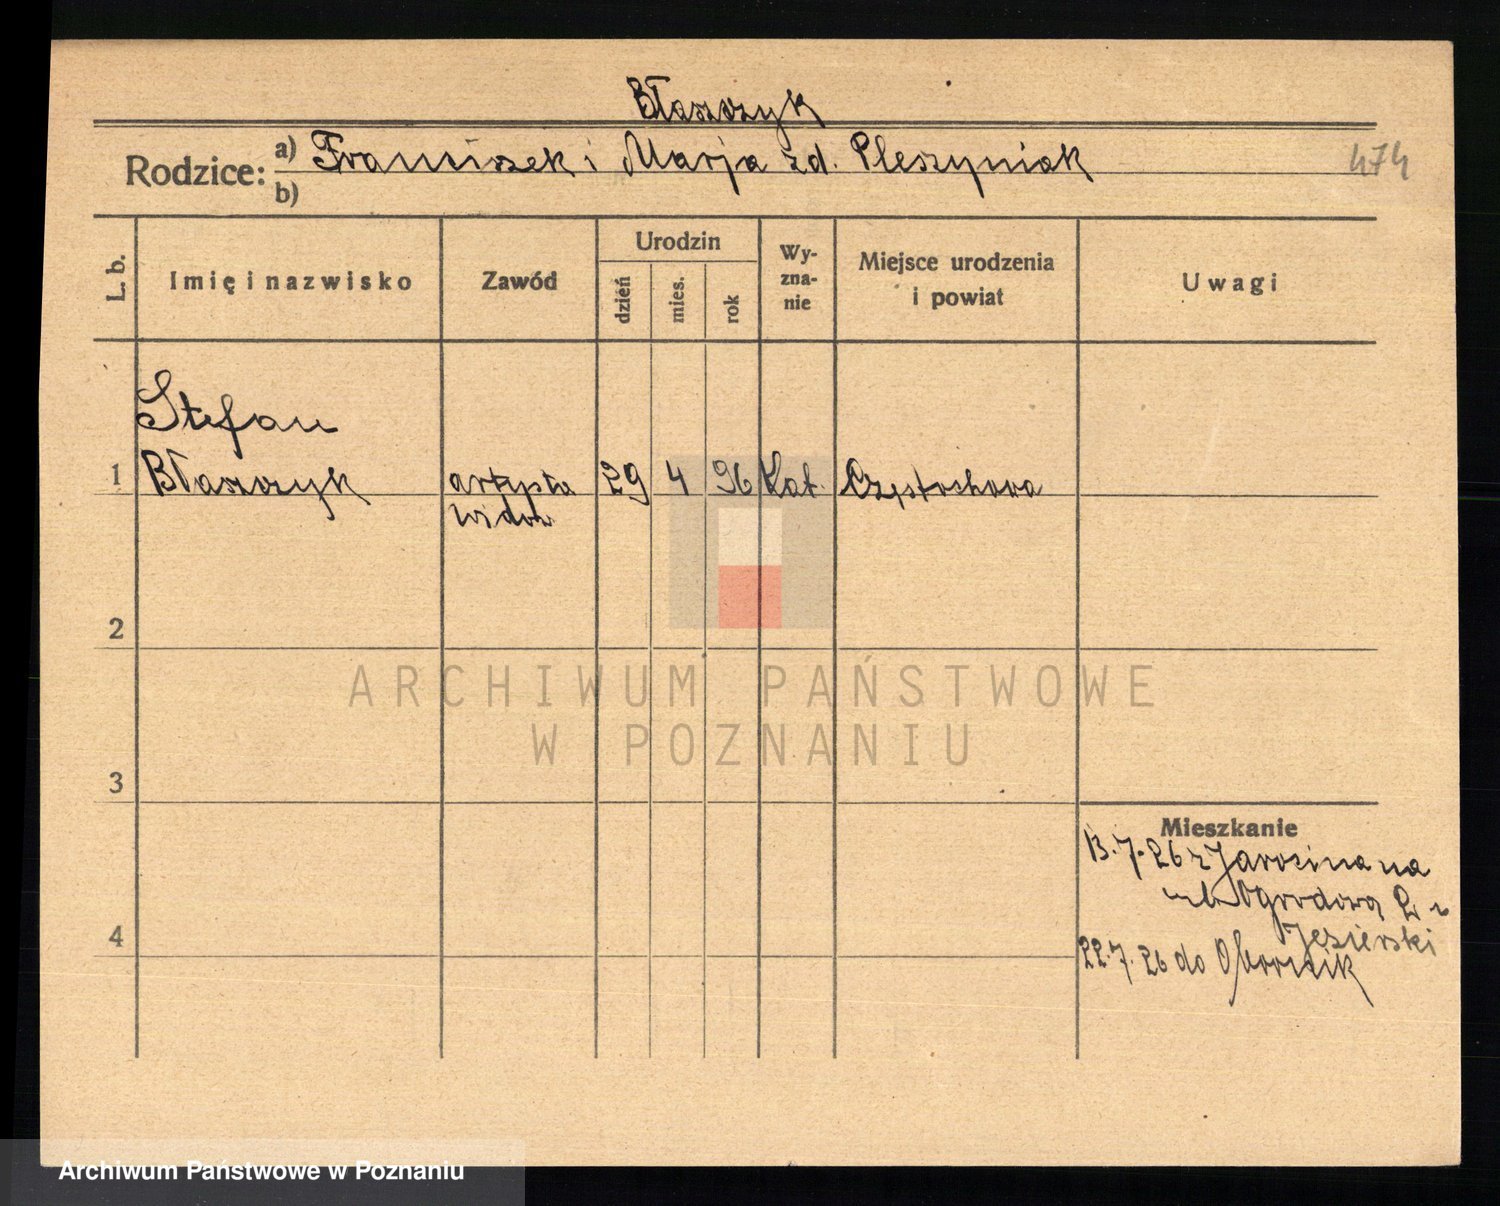 Błaszczyk
Rodzice: a) Franciszek i Marja zd. Pleszyniak
b)
474
L. b.
Imię i nazwisko
Zawód
Urodzin
dzień
mies.
rok
Wy-
zna-
nie
Miejsce urodzenia
i powiat
Uwagi
Stefan
1 Błaszczyk artysta 29 4 96 Kat. Częstochowa
widow
2
ARCHIWUM PAŃSTWOWE
W POZNANIU
3
Mieszkanie
13.7.26 z Jarocina na
ul. Ogrodową 2 u
Jezierski
4
22.7.26 do Obornik
Archiwum Państwowe w Poznaniu